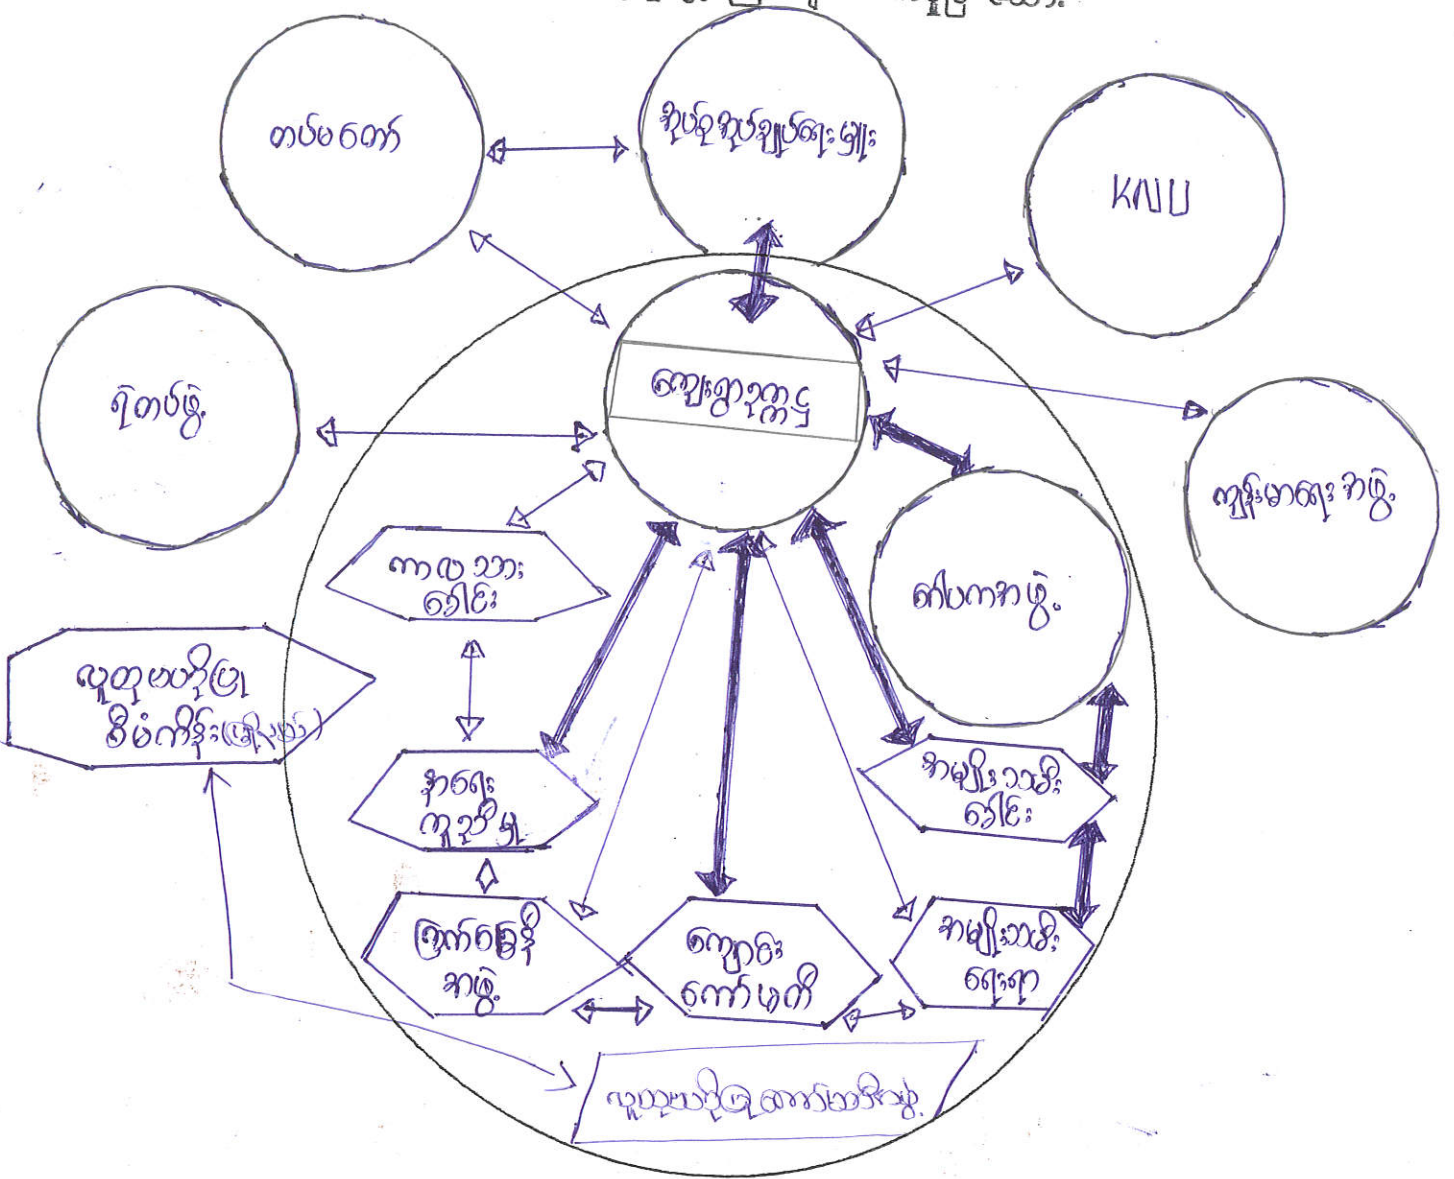 တပ်မတော်
အုပ်စုအုပ်ချုပ်ရေးမှူး
KNU
ရဲတပ်ဖွဲ့
ကျေးရွာဥက္ကဋ္ဌ
ကျန်းမာရေးအဖွဲ့
ကာလသား
ခေါင်း
ဓါပကအဖွဲ့
လူထုဗဟိုပြု
စီမံကိန်း
အရေး
ကူညီမှု
အမျိုးသမီး
ခေါင်း
ကြက်ခြေနီ
အဖွဲ့
ကျောင်း
ကော်မတီ
အမျိုးသမီး
ရေးရာ
လူထုဗဟိုပြုကော်မတီအဖွဲ့